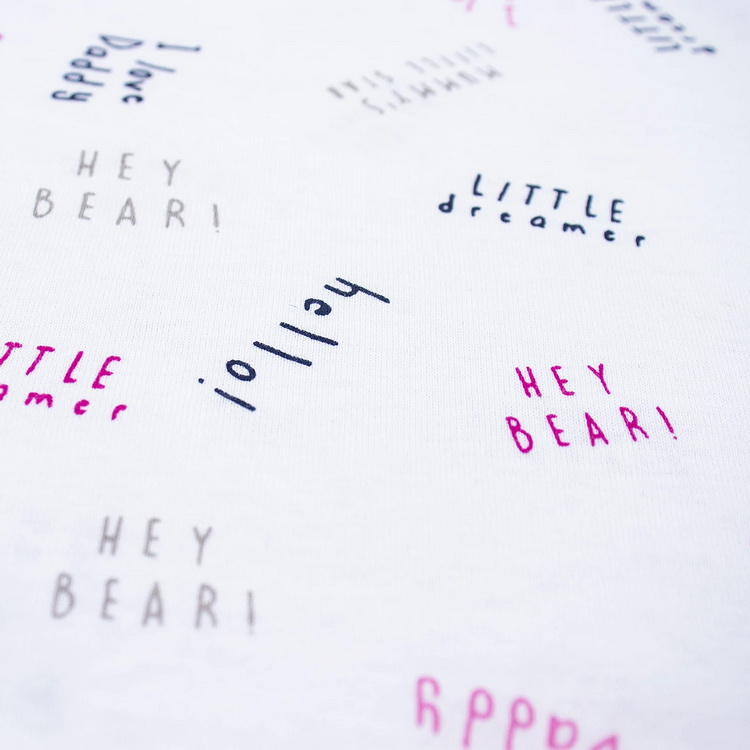 LITTLE
I love
Daddy
MUMMY'S
LITTLE STAR
HEY
BEAR!
LITTLE
dreamer
hello!
TTLE
amer
HEY
BEAR!
HEY
BEAR!
Daddy